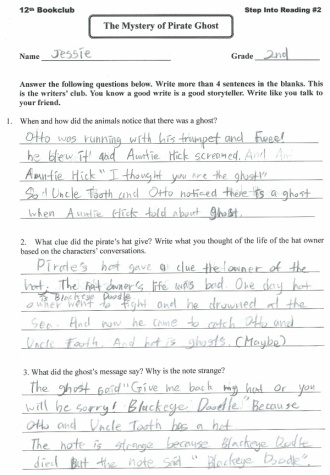 12th Bookclub Step Into Reading #2
The Mystery of Pirate Ghost
Name Jessie Grade 2nd
Answer the following questions below. Write more than 4 sentences in the blanks. This
is the writers' club. You know a good write is a good storyteller. Write like you talk to
your friend.
1. When and how did the animals notice that there was a ghost?
Otto was running with his trumpet and
he blew it! And Auntie Hick screamed. And
Auntie Hick "I thought you are the ghost!"
So! Uncle Tooth and Otto noticed there is a ghost
when Auntie Hick told about ghost.
2. What clue did the pirate's hat give? Write what you thought of the life of the hat owner
based on the characters' conversations.
Pirate's hat gave a clue the owner of the
hat. The hat owner's life was bad. One day hat
is Blackeye Doodle
owner went to fight and he drowned at the
Sea. And now he come to catch Otto and
Uncle Tooth. And hat is ghosts. (Maybe)
3. What did the ghost's message say? Why is the note strange?
The ghost said "Give me back my hat or you
will be sorry! Blackeye Doodle" Because
Otto and Uncle Tooth has a hat
The note is strange because Blackeye Dodle
died But the note said "Blackeye Doodle"